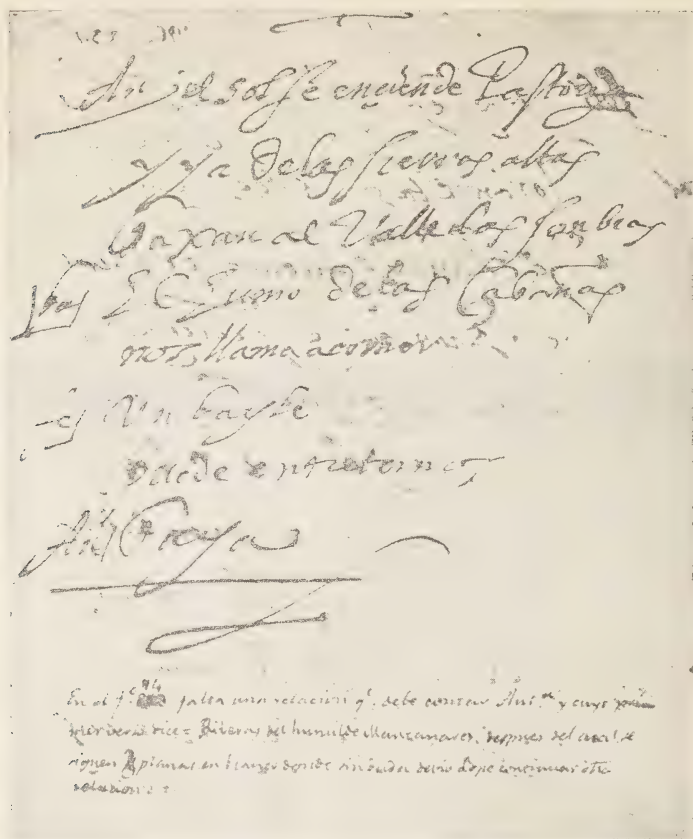 An.º el sol se enciende Pastores
y ya de las sierras altas
baxan al Valle las sombras
bas El Zumo de las Cabañas
nos llama a comer
cel Un bayle
puede entreternos
An.º Vaya
En el f.º 94 falta una relacion q.º debe contar Ant.º y cuyo
dice = Riveras del humilde Manzanares, despues del cual se
siguen planas en blanco donde sin duda devio Lope continuar otra
relacion =